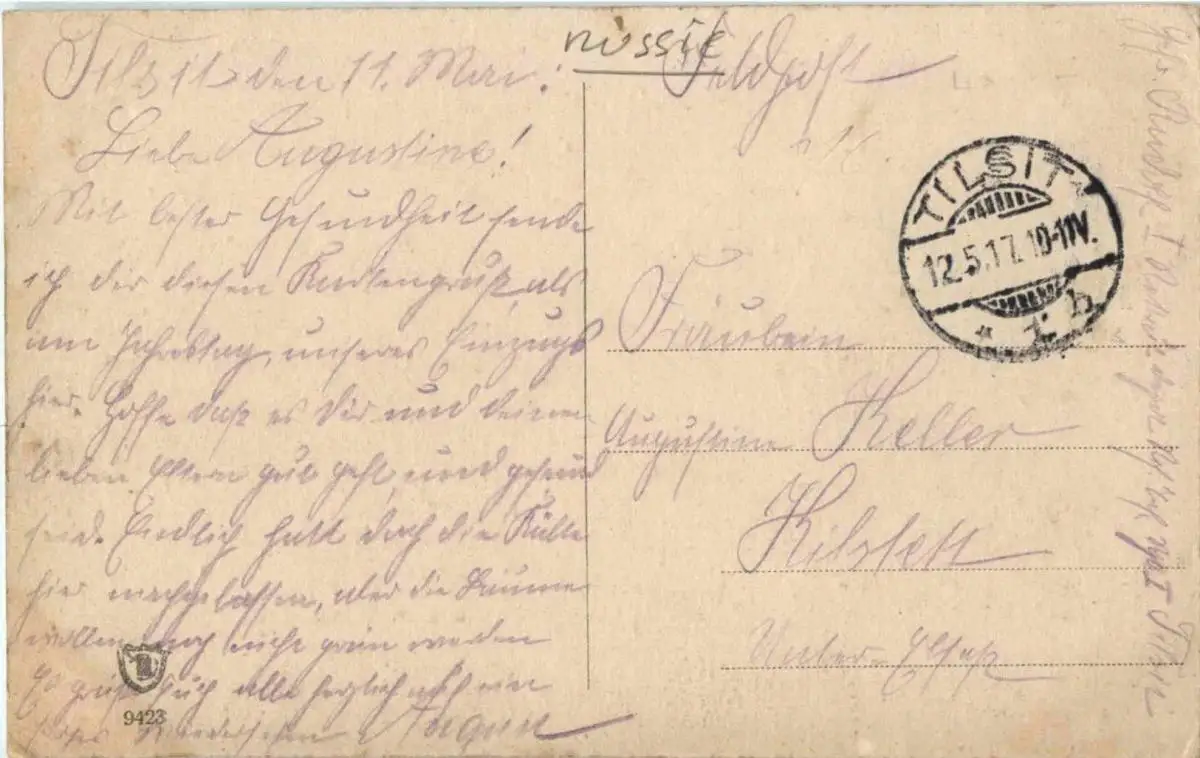 Tilsit den 11. Mai.
Liebe Augustine!
Mit bester Gesundheit sende
ich dir diesen Kartengruß als
am Jahrestag, unseres Einzugs
hier. Hoffe daß es Dir und deinen
lieben Eltern gut geht, und gesund
seid. Endlich hatt doch die Kälte
hier nachgelassen, aber die Bäume
wollen noch nicht grün werden
Es grüßt Euch alle herzlich auf ein
Wiedersehen
9423
russie
Feldpost
TILSIT
12.5.17.10-11V.
* 1 b
Fräulein
Augustine Keller
Kilstett
Unter-Elsaß
Tilsit